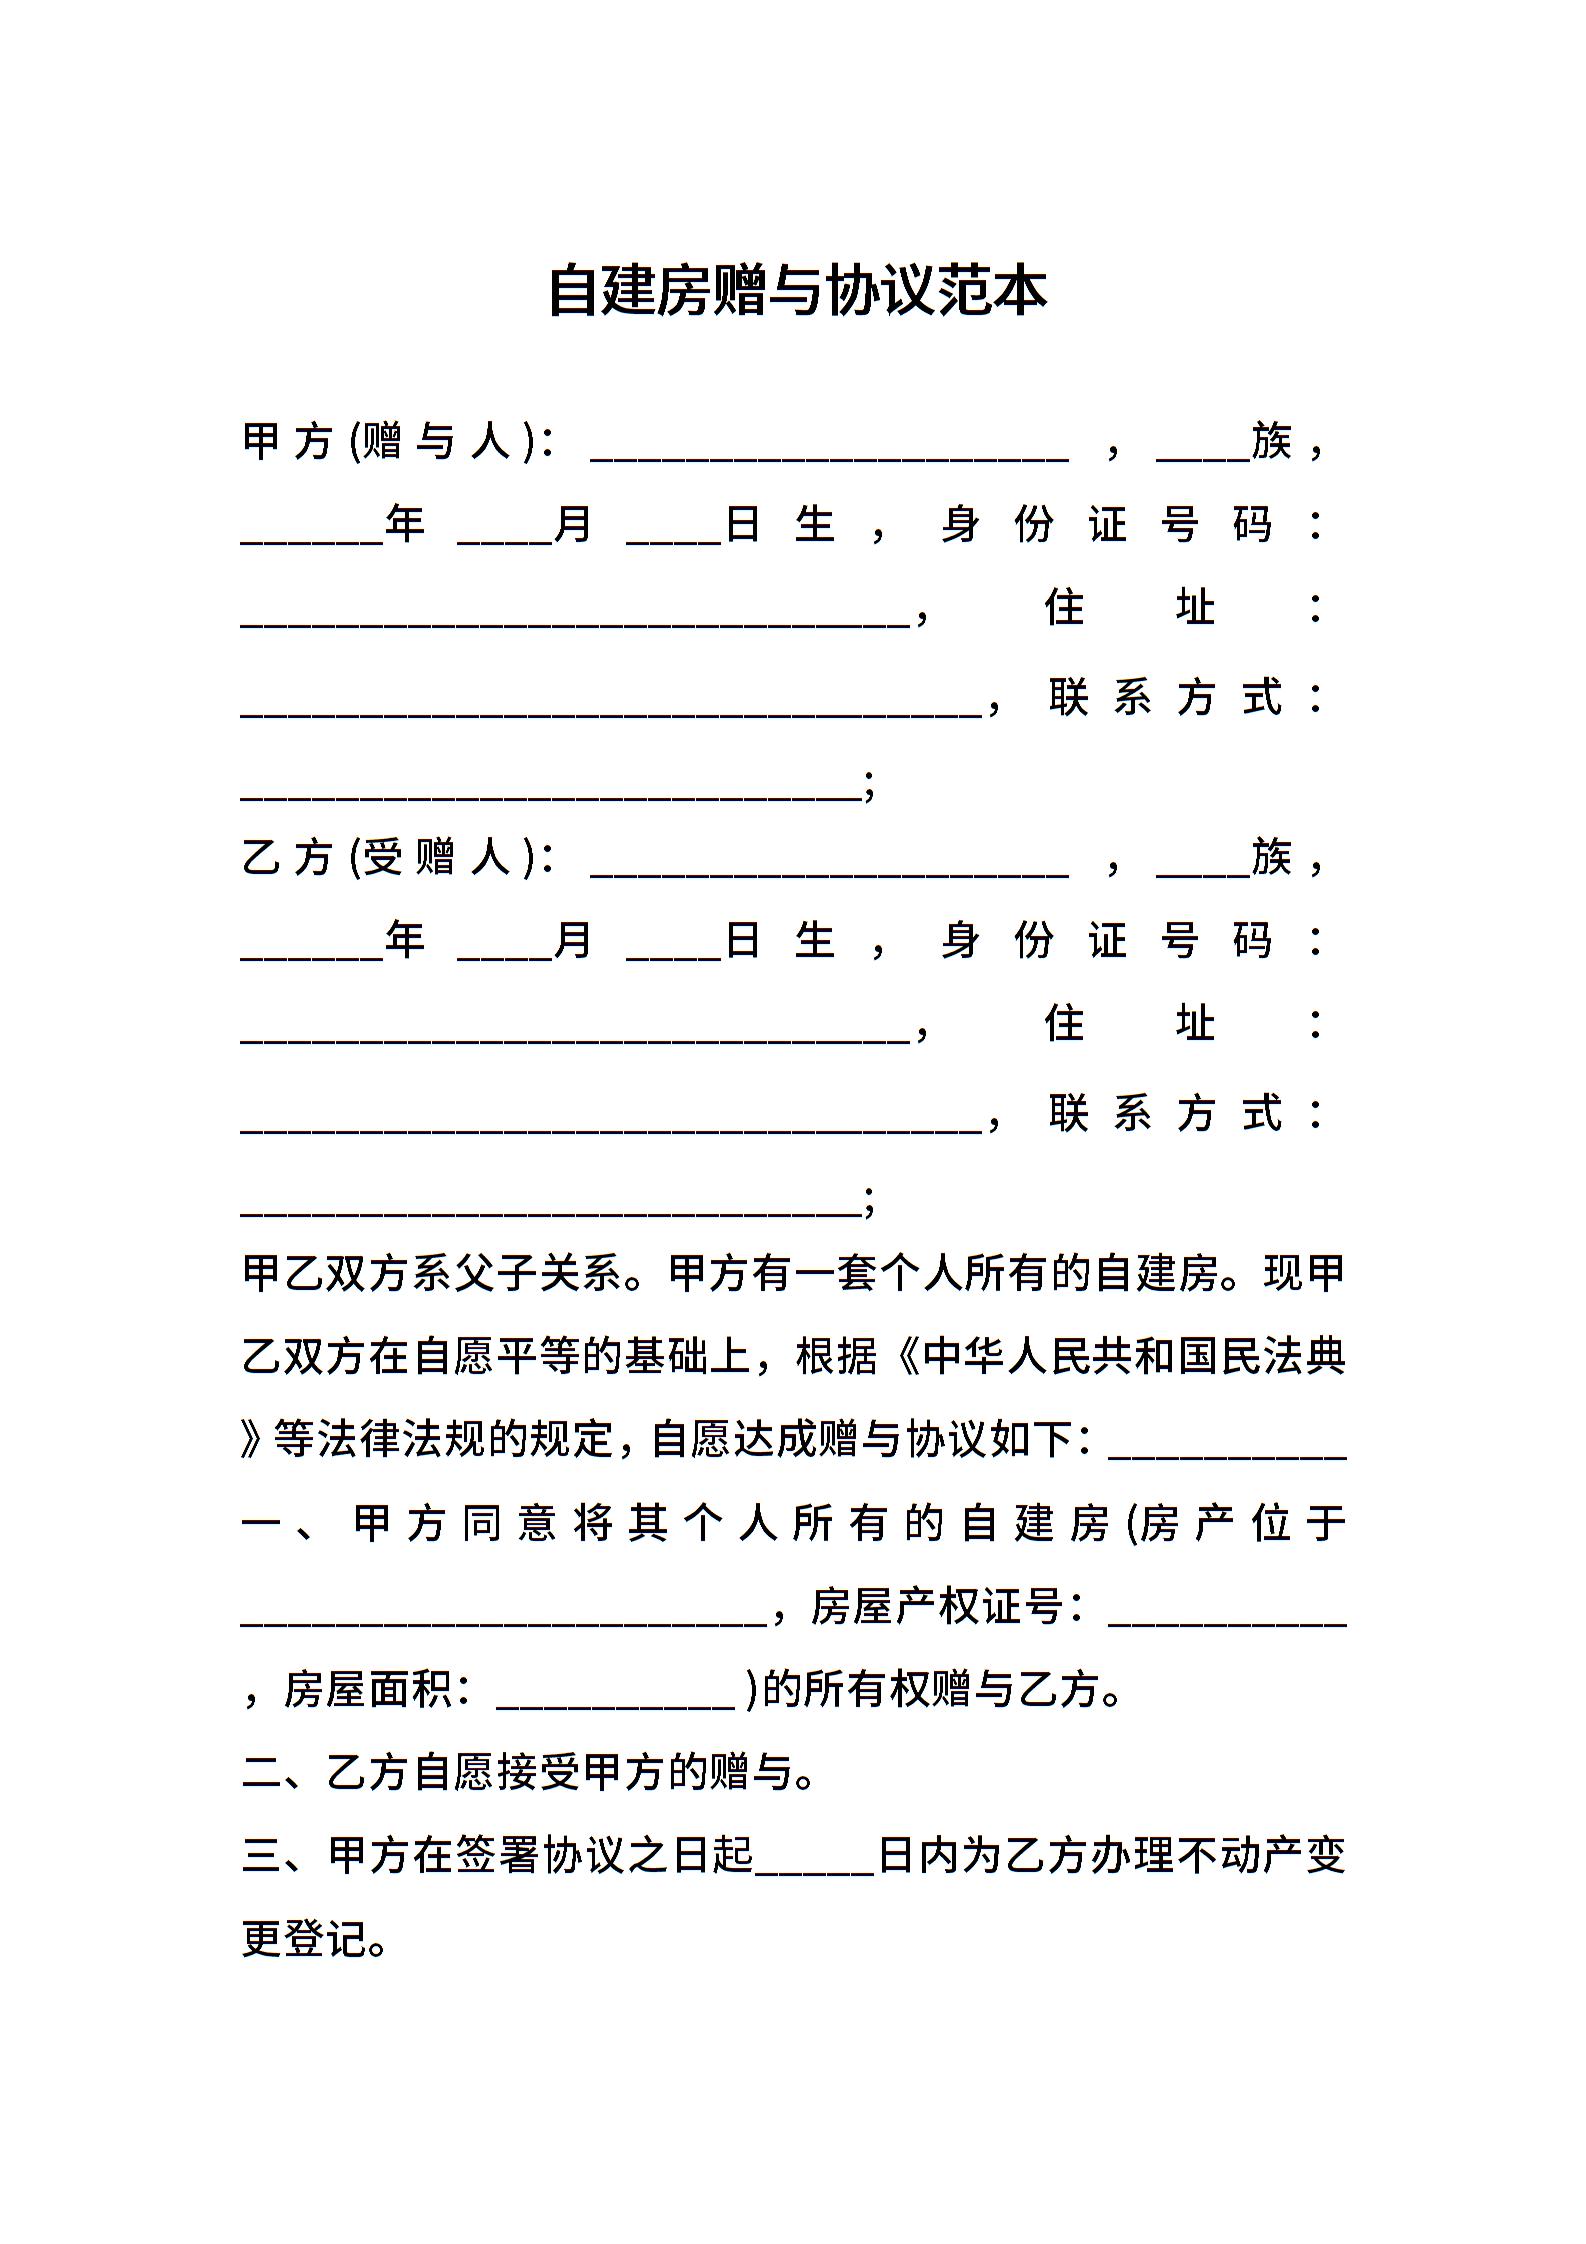 自建房赠与协议范本
甲方(赠与人)：____________________，____族，
______年____月____日生，身份证号码：
____________________________，住址：
_______________________________，联系方式：
__________________________;
乙方(受赠人)：____________________，____族，
______年____月____日生，身份证号码：
____________________________，住址：
_______________________________，联系方式：
__________________________;
甲乙双方系父子关系。甲方有一套个人所有的自建房。现甲
乙双方在自愿平等的基础上，根据《中华人民共和国民法典
》等法律法规的规定，自愿达成赠与协议如下：__________
一、甲方同意将其个人所有的自建房(房产位于
______________________，房屋产权证号：__________
，房屋面积：__________)的所有权赠与乙方。
二、乙方自愿接受甲方的赠与。
三、甲方在签署协议之日起_____日内为乙方办理不动产变
更登记。